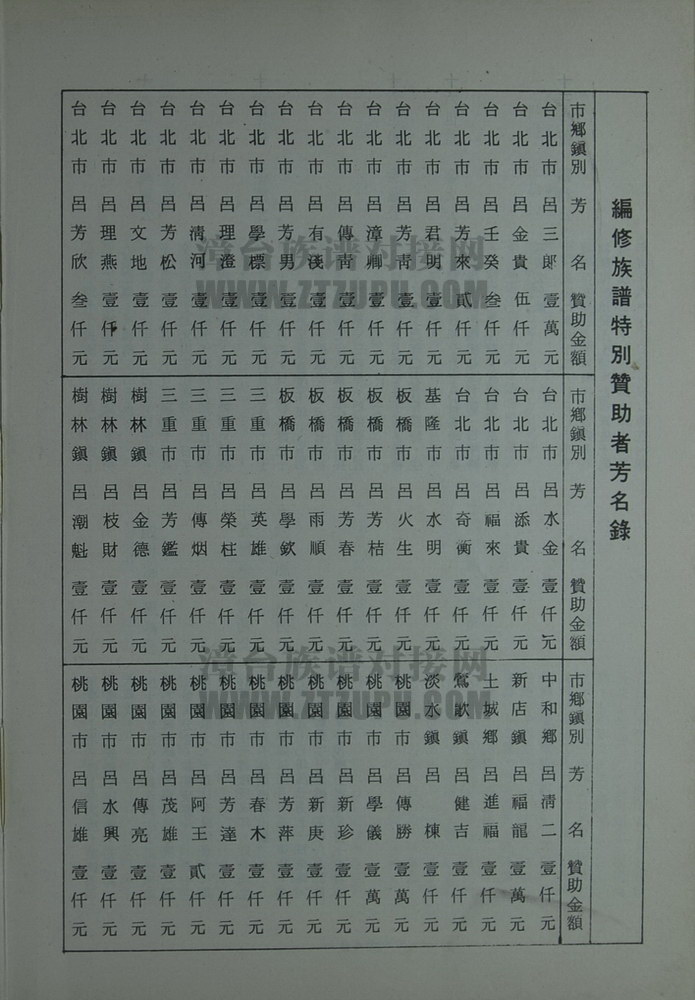 編修族譜特別贊助者芳名錄
市鄉鎮別 芳名 贊助金額
台北市 呂三郎 壹萬元
台北市 呂金貴 伍仟元
台北市 呂壬癸 叁仟元
台北市 呂芳來 貳仟元
台北市 呂君明 壹仟元
台北市 呂芳青 壹仟元
台北市 呂漳卿 壹仟元
台北市 呂傳青 壹仟元
台北市 呂有淺 壹仟元
台北市 呂芳男 壹仟元
台北市 呂學標 壹仟元
台北市 呂理澄 壹仟元
台北市 呂清河 壹仟元
台北市 呂芳松 壹仟元
台北市 呂文地 壹仟元
台北市 呂理燕 壹仟元
台北市 呂芳欣 叁仟元
市鄉鎮別 芳名 贊助金額
台北市 呂水金 壹仟元
台北市 呂添貴 壹仟元
台北市 呂福來 壹仟元
台北市 呂奇衡 壹仟元
基隆市 呂水明 壹仟元
板橋市 呂火生 壹仟元
板橋市 呂芳桔 壹仟元
板橋市 呂芳春 壹仟元
板橋市 呂雨順 壹仟元
板橋市 呂學欽 壹仟元
三重市 呂英雄 壹仟元
三重市 呂榮柱 壹仟元
三重市 呂傳烟 壹仟元
三重市 呂芳鑑 壹仟元
樹林鎮 呂金德 壹仟元
樹林鎮 呂枝財 壹仟元
樹林鎮 呂潮魁 壹仟元
市鄉鎮別 芳名 贊助金額
中和鄉 呂清二 壹仟元
新店鎮 呂福龍 壹萬元
土城鄉 呂進福 壹仟元
鶯歌鎮 呂健吉 壹仟元
淡水鎮 呂棟 壹仟元
桃園市 呂傳勝 壹萬元
桃園市 呂學儀 壹萬元
桃園市 呂新珍 壹仟元
桃園市 呂新庚 壹仟元
桃園市 呂芳萍 壹仟元
桃園市 呂春木 壹仟元
桃園市 呂芳達 壹仟元
桃園市 呂阿王 貳仟元
桃園市 呂茂雄 壹仟元
桃園市 呂傳亮 壹仟元
桃園市 呂水興 壹仟元
桃園市 呂信雄 壹仟元
漳台族谱对接网
WWW.ZTZUPU.COM
漳台族谱对接网
WWW.ZTZUPU.COM